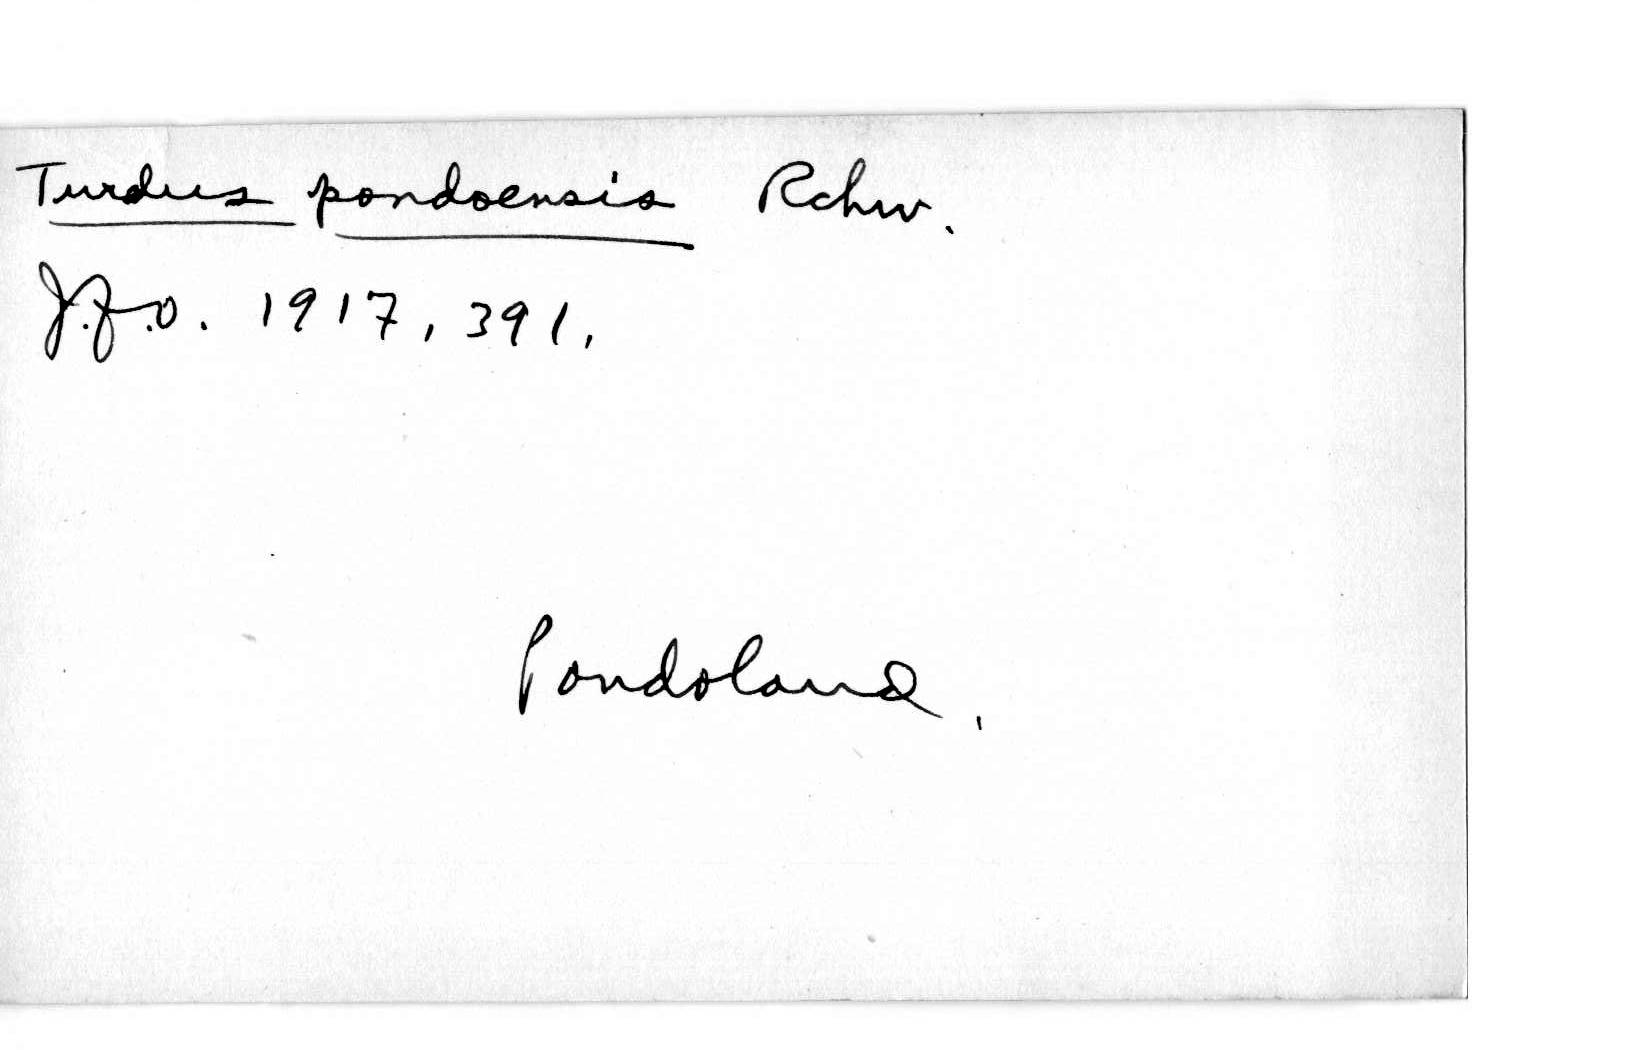 Turdus pondoensis Rchw.
J.f.O. 1917, 391.
Pondoland.